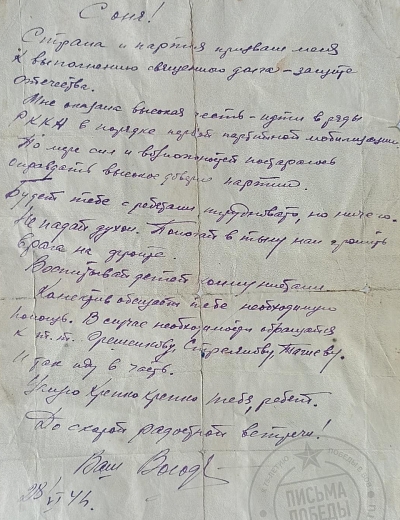 Соня!
Страна и партия призвали меня
к выполнению священного долга – защите
отечества.
Мне оказана высокая честь – идти в ряды
РККА в порядке первой партийной мобилизации.
По мере сил и возможностей постараюсь
оправдать высокое доверие партии.
Будет тебе с ребятами трудновато, но ничего.
Не падай духом. Помогай в тылу нам громить
врага на фронте.
Воспитывай детей коммунистами.
Коллектив обещает тебе необходимую
помощь. В случае необходимости обращайся
к т.т. Грешенкову, Стрелкову,
Итак иду в часть.
Целую крепко крепко тебя, ребят.
До скорой радостной встречи!
Ваш
28/VI 41.
ПИСЬМА
ПОБЕДЫ